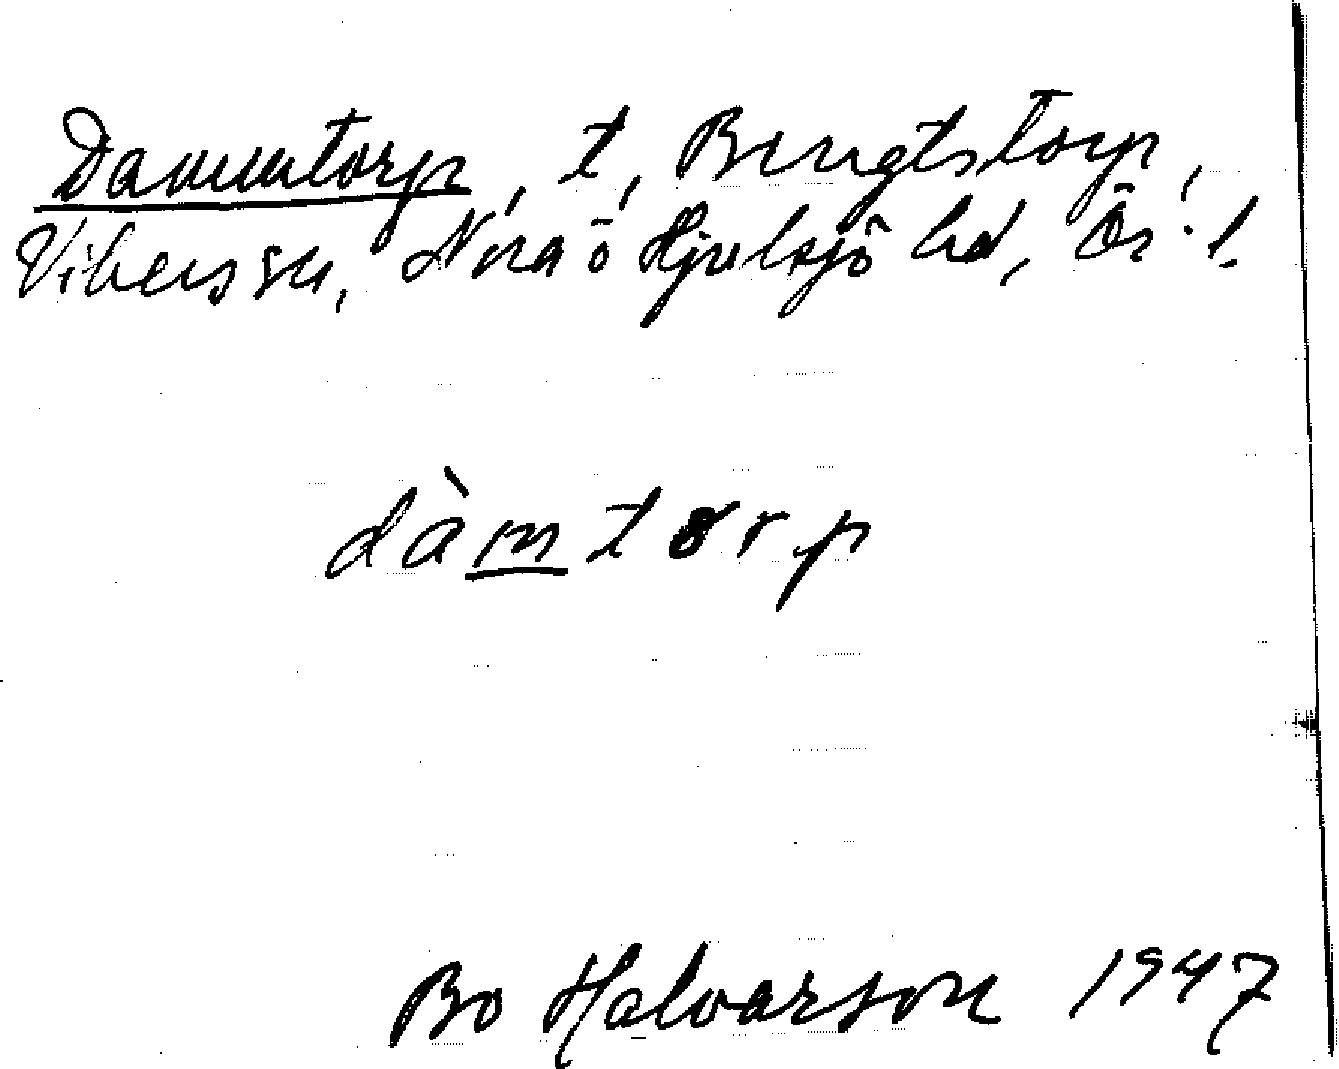 Dammtorp, t, Bengtstorp,
Vibers sn, Nora o Hjulsjö hd, Ör. l.
dàmtorp
Bo Halvarson 1947